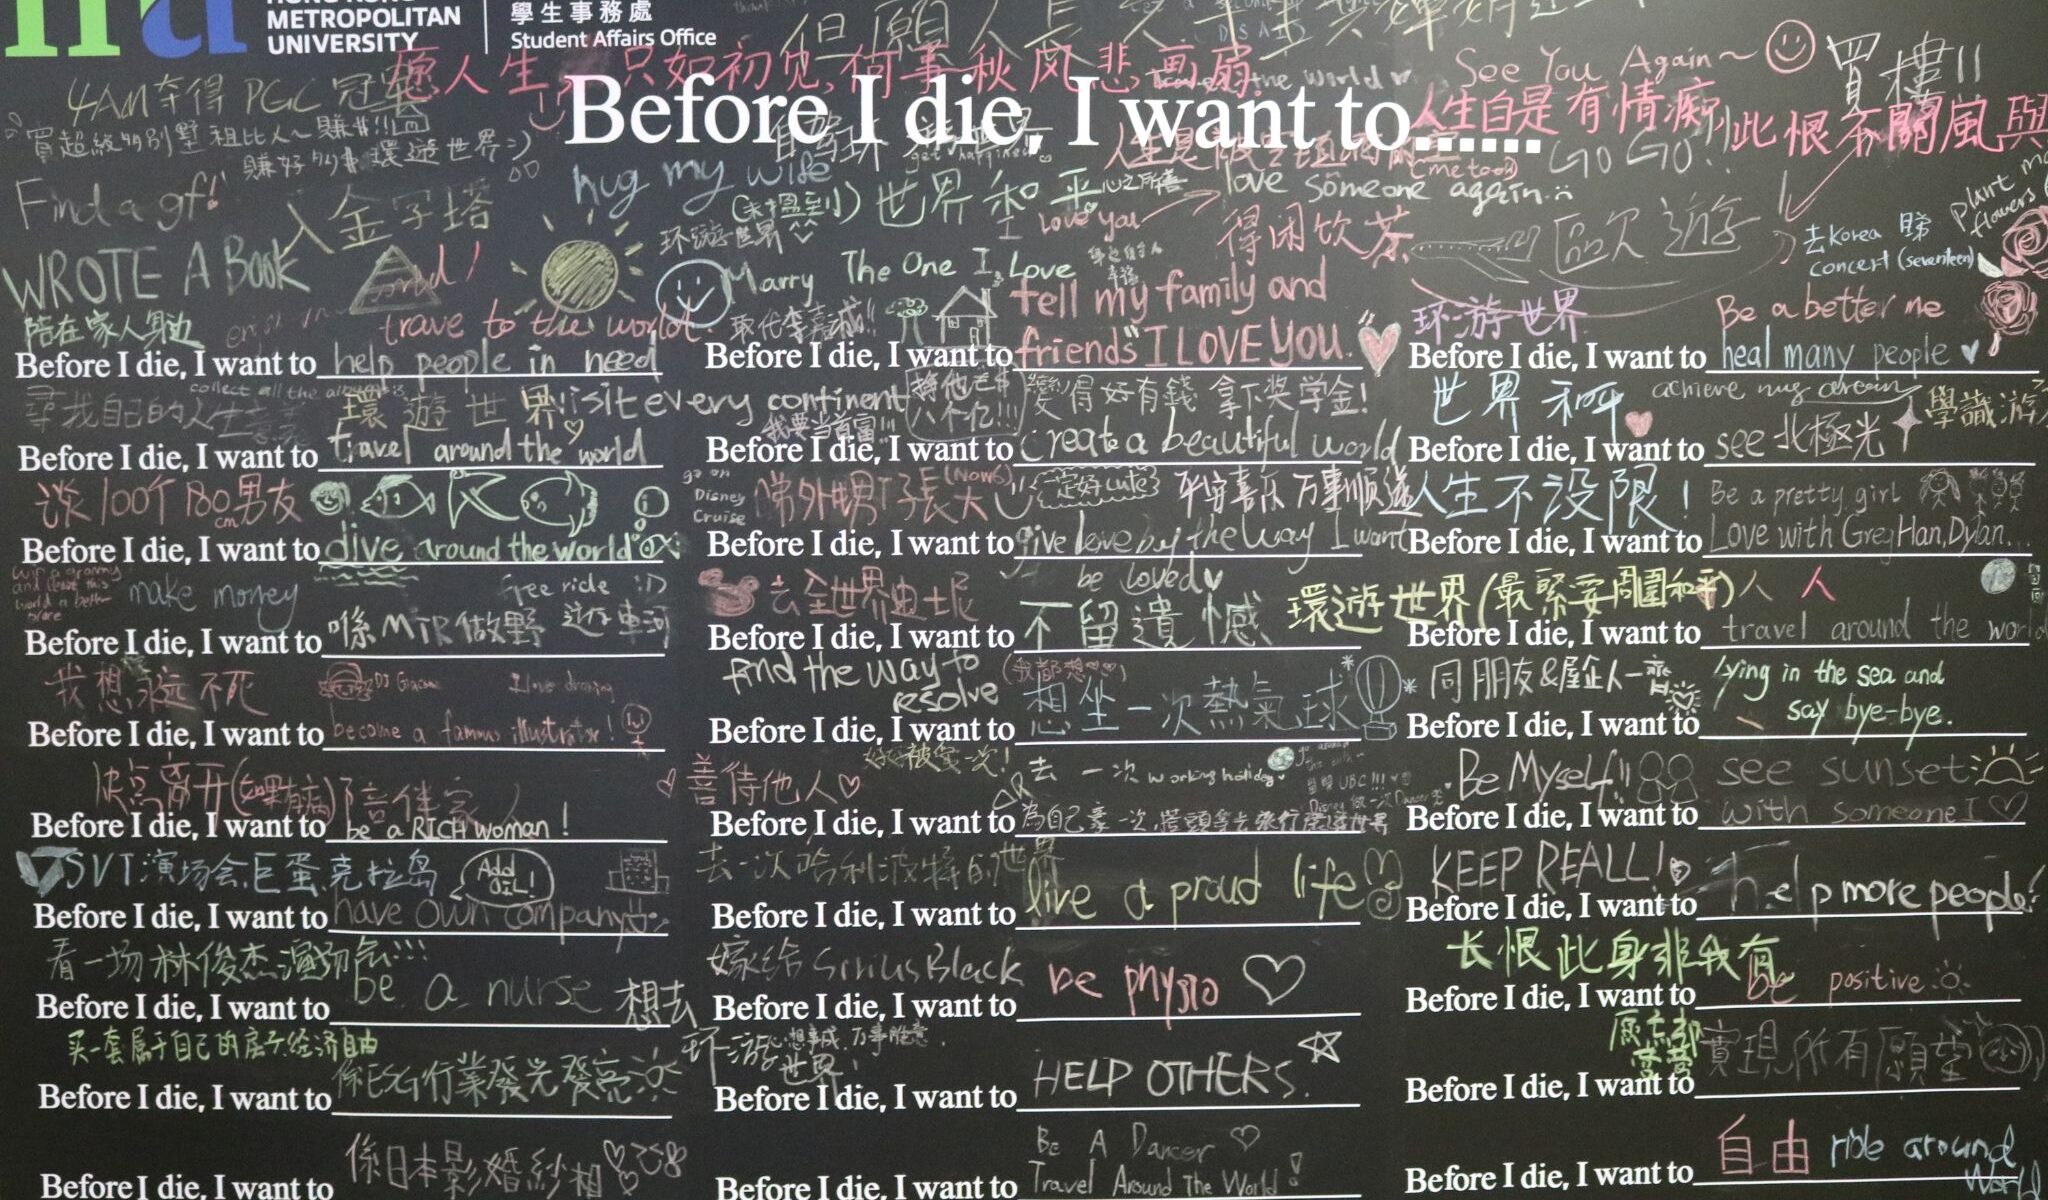 METROPOLITAN
UNIVERSITY
學生事務處
Student Affairs Office
但願人長
4AM夺得PGC冠军
愿人生 只如初见,何事秋风悲画扇.
See You Again~
買樓!!
Before I die, I want to......
人生自是有情痴,此恨不關風與
買超級多別墅租比人~賺
賺好多 環遊世界:)
get happiness
(me too)
GO GO!
Find a gf!
入金字塔
hug my wife
世界和平
心之所善
love someone again
plant more
flowers
环游世界
I love you
得闲饮茶
區欠遊
去Korea 睇
concert (seventeen)
WROTE A BOOK
Marry The One I Love
tell my family and
环游世界
Be a better me
陪在家人身边
trave to the world
取代李嘉誠!!
Before I die, I want to help people in need
Before I die, I want to friends "I LOVE YOU.
Before I die, I want to heal many people
collect all the
尋找自己的人生意義
環遊世界
visit every continent
我要当首富!!!
變得好有錢 拿下奖学金!
世界和平
achieve my dream
學識游
Before I die, I want to travel around the world
Before I die, I want to create a beautiful world
Before I die, I want to see 北極光
谈100个180cm男友
go on
Disney
Cruise
睇外甥仔長大 (Now 6)
一定好cute
平安喜乐 万事顺遂
人生不没限!
Be a pretty girl
Before I die, I want to dive around the world
Before I die, I want to give love by the way I want
be loved
Before I die, I want to Love with GregHan, Dylan...
and leave this
world a better
place
make money
free ride :)
去全世界迪士尼
環遊世界(最緊要周圍和平)
人 人
Before I die, I want to 喺MTR做野 遊車河
Before I die, I want to 不留遺憾
Before I die, I want to travel around the world
我想永远不死
I love drawing
find the way to
resolve
(我都想)
同朋友&屋企人一齊
lying in the sea and
say bye-bye.
Before I die, I want to become a famous illustrator!
Before I die, I want to 想坐一次熱氣球
Before I die, I want to
快点离开(如果有病)
陪伴家人
善待他人
好好被愛一次!
去一次working holiday
Be Myself!!
see sunset
Before I die, I want to be a RICH woman!
Before I die, I want to
Before I die, I want to with someone I
SVT演场会巨蛋克拉岛
Add
OIL!
去一次哈利波特的世界
KEEP REALL!
Before I die, I want to have own company
Before I die, I want to live a proud life
Before I die, I want to help more people!
看一场林俊杰演唱会!!!
嫁给Sirius Black
长恨此身非我有
Before I die, I want to be a nurse
想去
Before I die, I want to be physio
Before I die, I want to be positive
买一套属于自己的房子,经济自由
环游世界!
心想事成,万事胜意.
Before I die, I want to 係ESG行業發光發亮
Before I die, I want to HELP OTHERS.
Before I die, I want to 實現所有願望
Before I die, I want to 係日本影婚紗相
Be A Dancer
Before I die, I want to Travel Around The World!
Before I die, I want to 自由 ride around
World